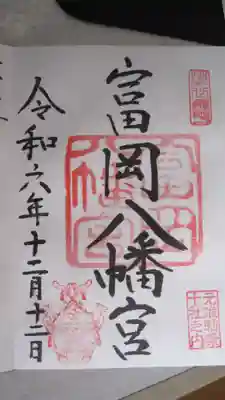 富岡八幡宮
元准勅祭
十社之内
令和六年十二月十二日